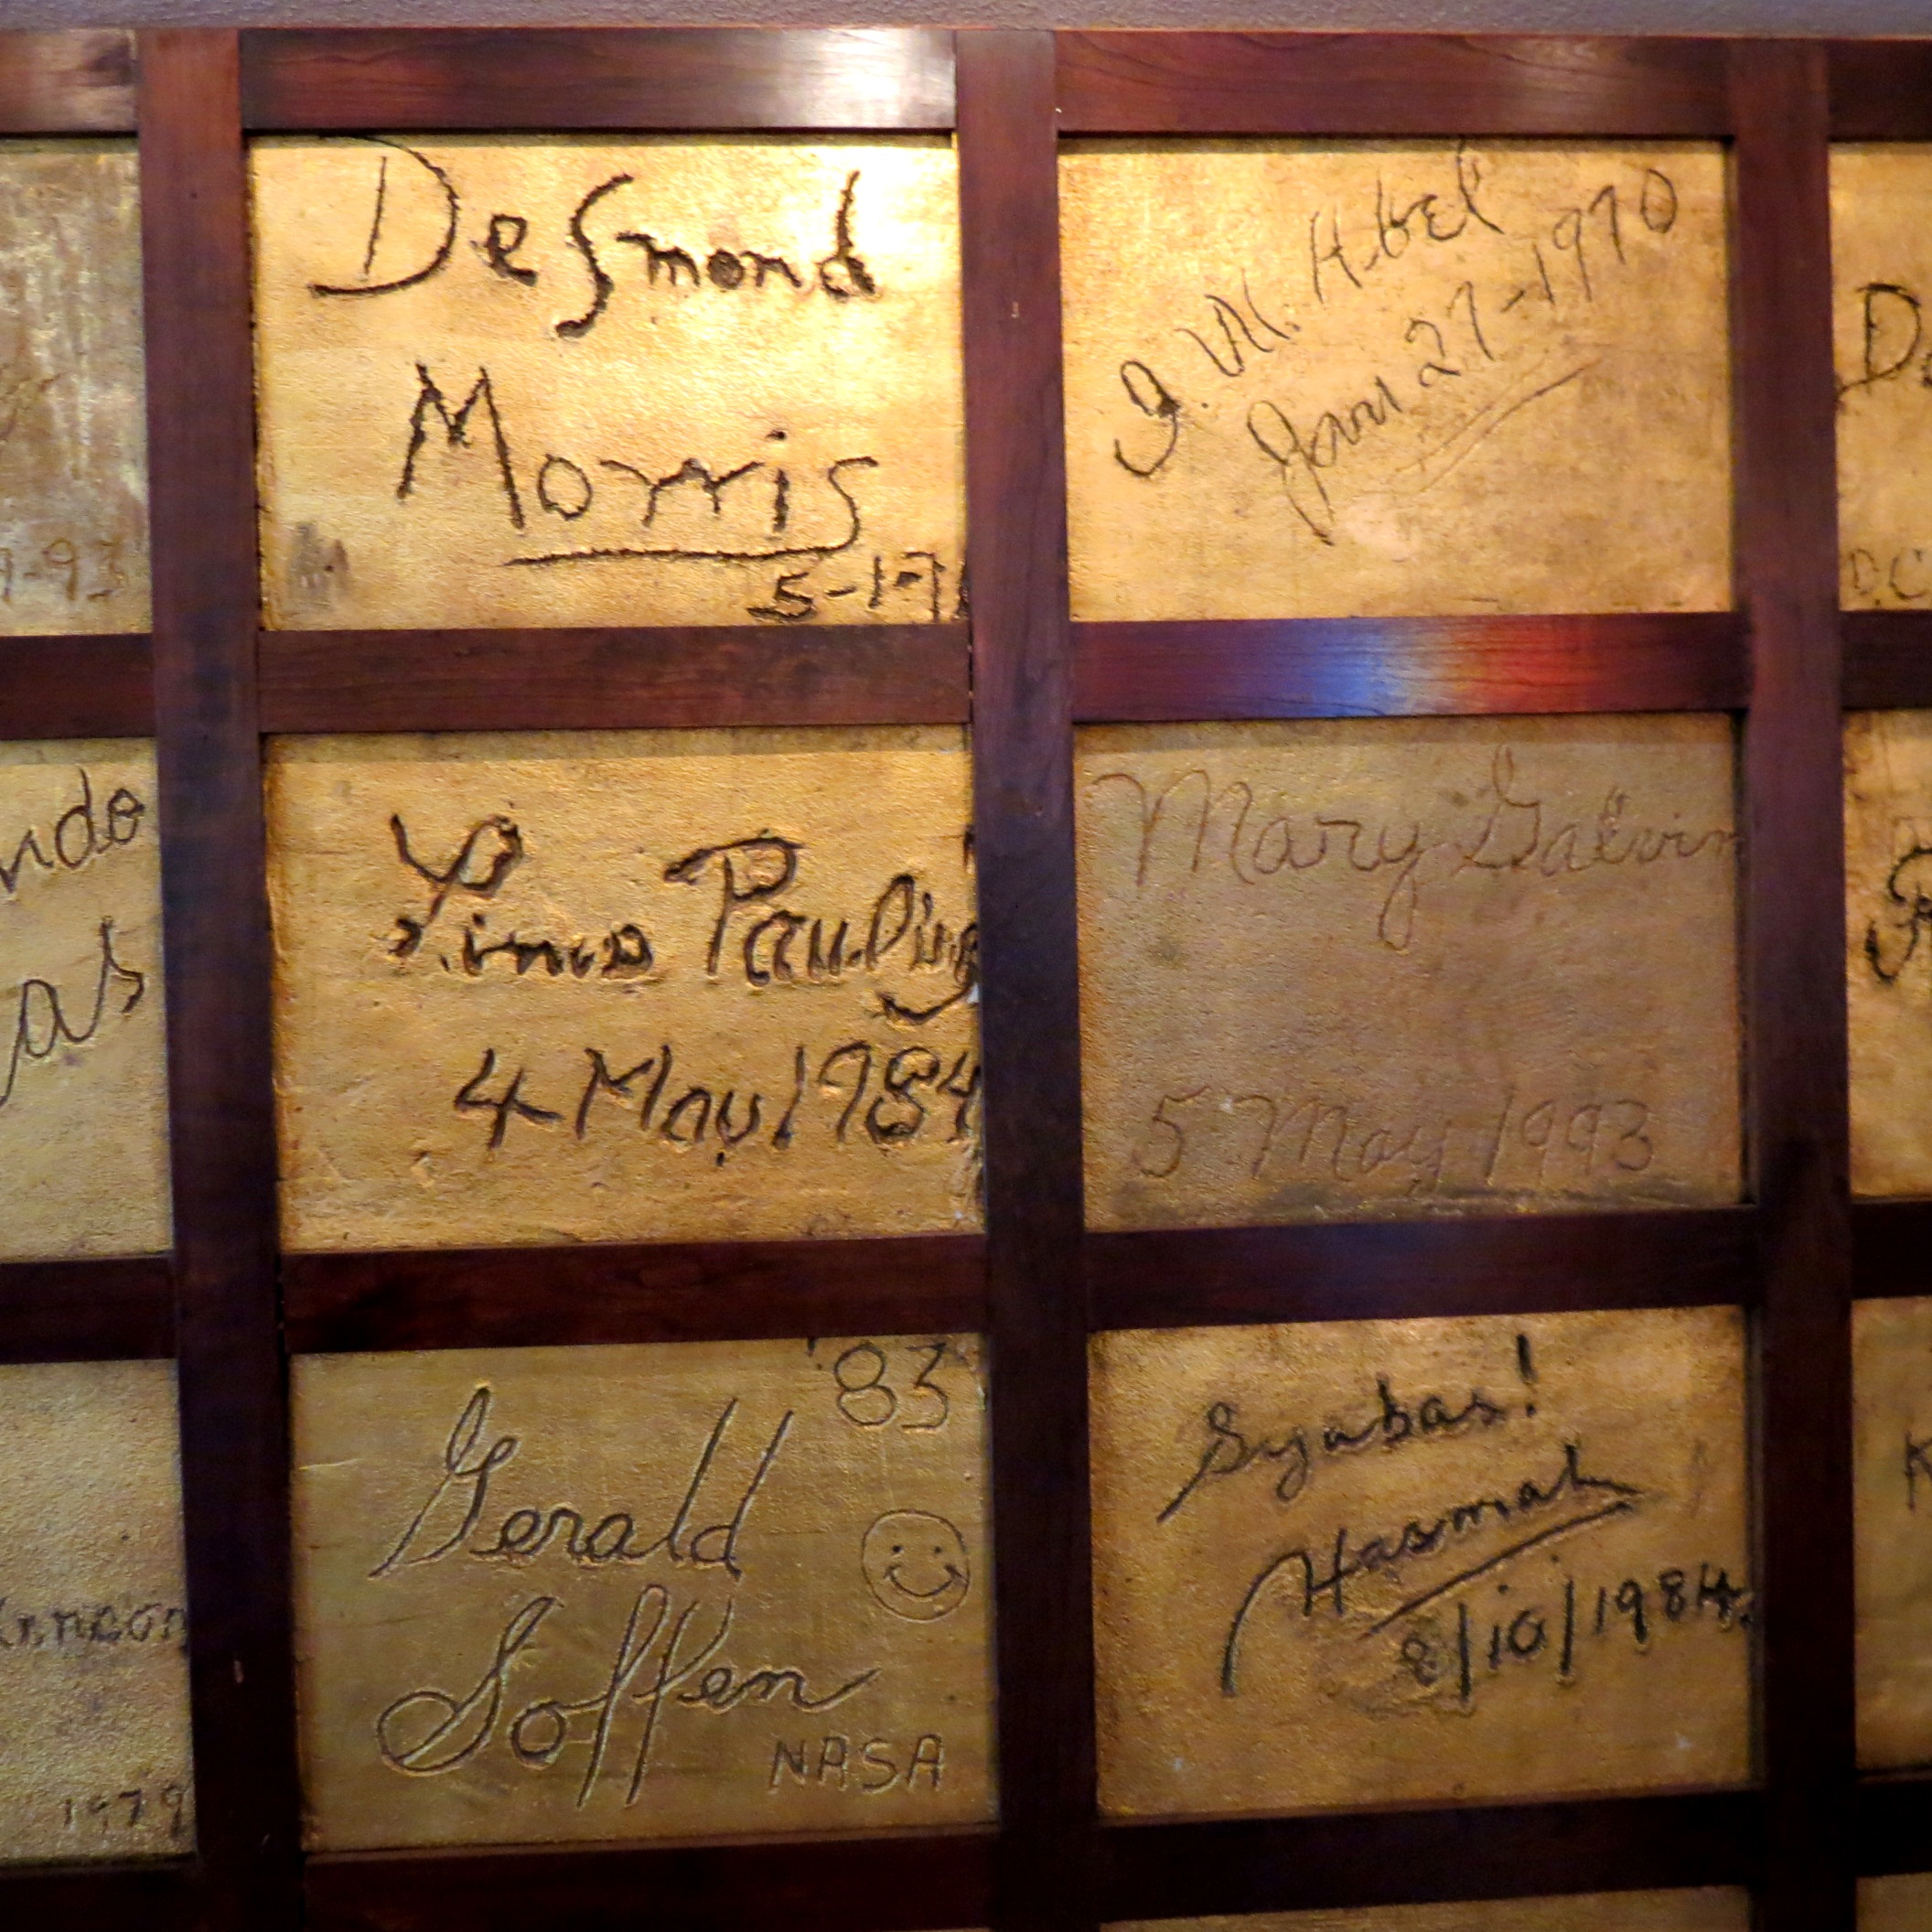 9-93
Desmond
Morris
5-1-7
I. W. Abel
Jan 27-1970
D
D.C
ndo
as
Linus Pauling
4 May 1984
Mary Galvin
5 May 1993
nnon
1979
'83
Gerald
Soffen
NASA
Syabas!
Hasmah
8/10/1984
K